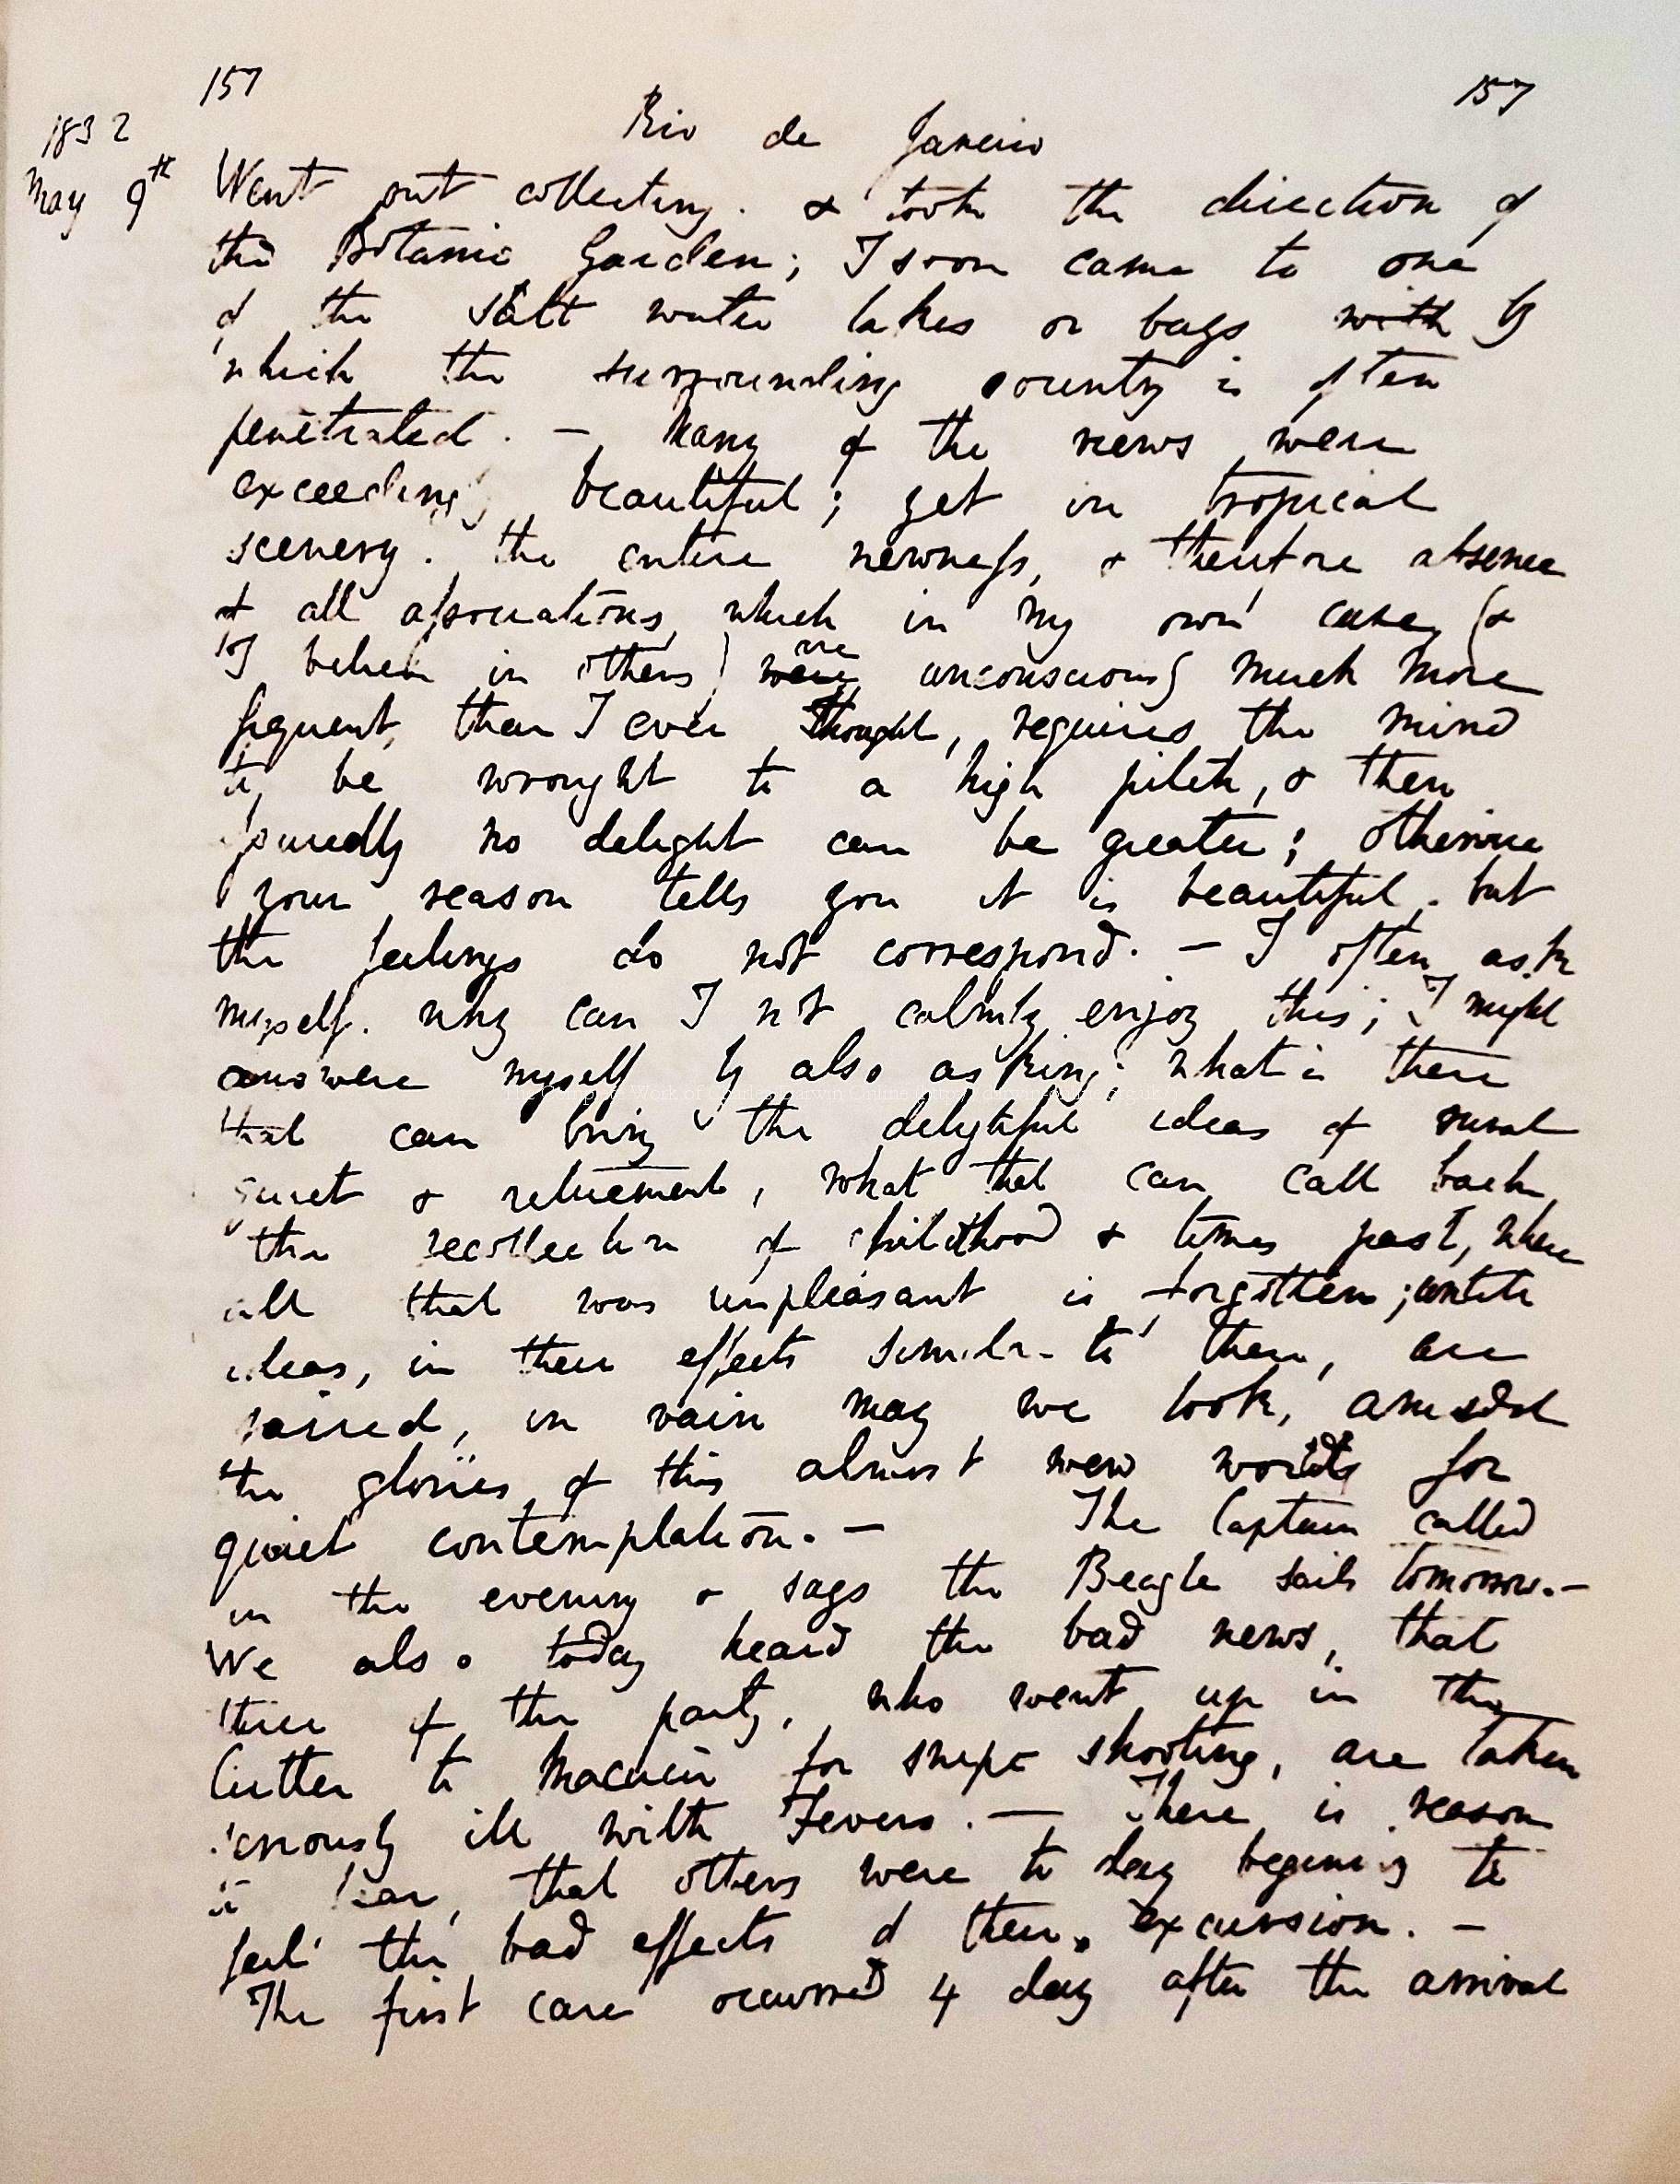 157 157
Rio de Janeiro
1832
May 9th Went out collecting. & took the direction of
the Botanic Garden; I soon came to one
of the salt water lakes or bays with by
which the surrounding country is often
penetrated. — Many of the views were
exceedingly beautiful; yet in tropical
scenery. the entire newness, & therefore absence
of all associations, which in my own case, (&
I believe in others) were are unconsciously much more
frequent, than I ever thought, requires the mind
to be wrought to a high pitch, & then
assuredly no delight can be greater; otherwise
your reason tells you it is beautiful. but
the feelings do not correspond. — I often ask
myself. why can I not calmly enjoy this; I might
answere myself by also asking; what is there
that can bring the delightful ideas of rural
quiet & retirement, what that can call back
the recollection of childhood & times past, where
all that was unpleasant is forgotten; untill
ideas, in their effects similar to them, are
raised, in vain may we look, amidst
the glories of this almost new world, for
quiet contemplation. — The Captain called
in the evening & says the Beagle sails tomorrow. —
We also today heard the bad news, that
three of the party, who went up in the
Cutter to Macucu for snipe shooting, are taken
seriously ill with Fevers. — There is reason
to fear, that others were to day begining to
feel the bad effects of their excursion. —
The first case occurred 4 day after the arrival